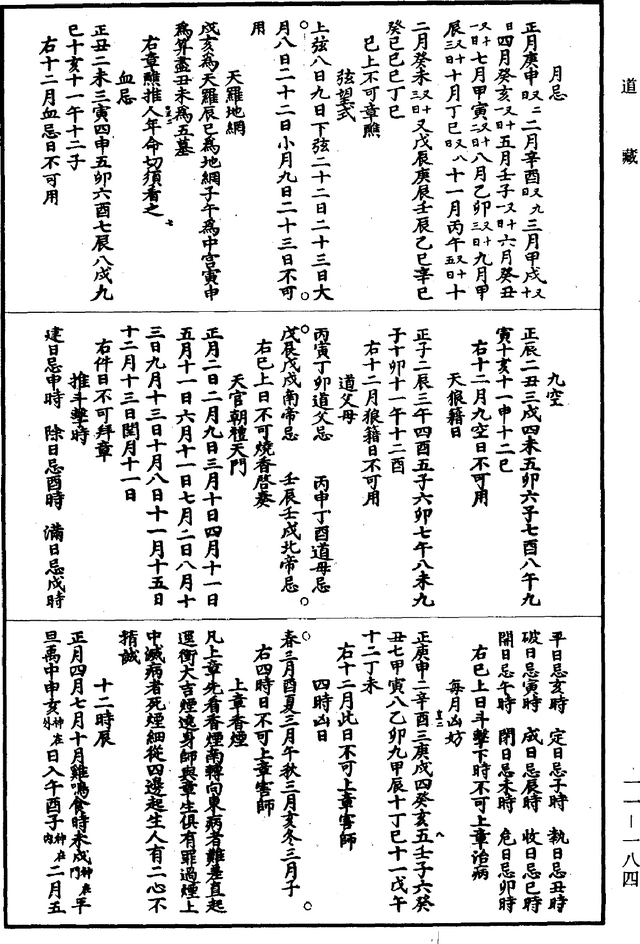 道藏
月忌
正月庚申日又二二月辛酉日又九三月甲戌十又
日四月癸亥又十一日五月壬子又十一日六月癸丑
又十一日七月甲寅又十二日八月乙卯又十三日九月甲
辰又十三日十月丁巳日又八十一月丙午又十五日十
二月癸未又十三日又戊辰庚辰壬辰乙巳辛巳
癸巳己巳丁巳
已上不可章醮
弦望式
上弦八日九日下弦二十二日二十三日大
月八日二十二日小月九日二十三日不可
用
天羅地網
戌亥為天羅辰巳為地網子午為中宮寅申
為筭盡丑未為五墓
右章醮推人年命切須看之
血忌
正丑二未三寅四申五卯六酉七辰八戌九
巳十亥十一午十二子
右十二月血忌日不可用
九空
正辰二丑三戌四未五卯六子七酉八午九
寅十亥十一申十二巳
右十二月九空日不可用
天狼籍日
正子二辰三午四酉五子六卯七午八未九
子十卯十一午十二酉
右十二月狼籍日不可用
道父母
丙寅丁卯道父忌 丙申丁酉道母忌
戊辰戊戌南帝忌 壬辰壬戌北帝忌
右巳上日不可燒香啓奏
天官朝禮天門
正月二日二月九日三月十日四月十一日
五月十一日六月十一日七月二日八月十
三日九月十三日十月八日十一月十五日
十二月十三日閏月十一日
右件日不可拜章
推斗擊時
建日忌申時 除日忌酉時 滿日忌戌時
平日忌亥時 定日忌子時 執日忌丑時
破日忌寅時 成日忌辰時 收日忌巳時
開日忌午時 閉日忌未時 危日忌卯時
右巳上日斗擊下時不可上章治病
每月凶妨
正庚申二辛酉三庚戌四癸亥五壬子六癸
丑七甲寅八乙卯九甲辰十丁巳十一戊午
十二丁未
右十二月此日不可上章害師
四時凶日
春三月酉夏三月午秋三月亥冬三月子
右四時日不可上章害師
上章香煙
凡上章先看香煙南轉向東病者難差直起
還衝大吉煙遶身師與章生俱有罪過煙上
中滅病者死煙細從四邊起生人有二心不
精誠
十二時辰
正月四月七月十月雞鳴食時未戌神在門平
旦禺中申亥神在外日入午酉子神在內二月五
一一—一八四